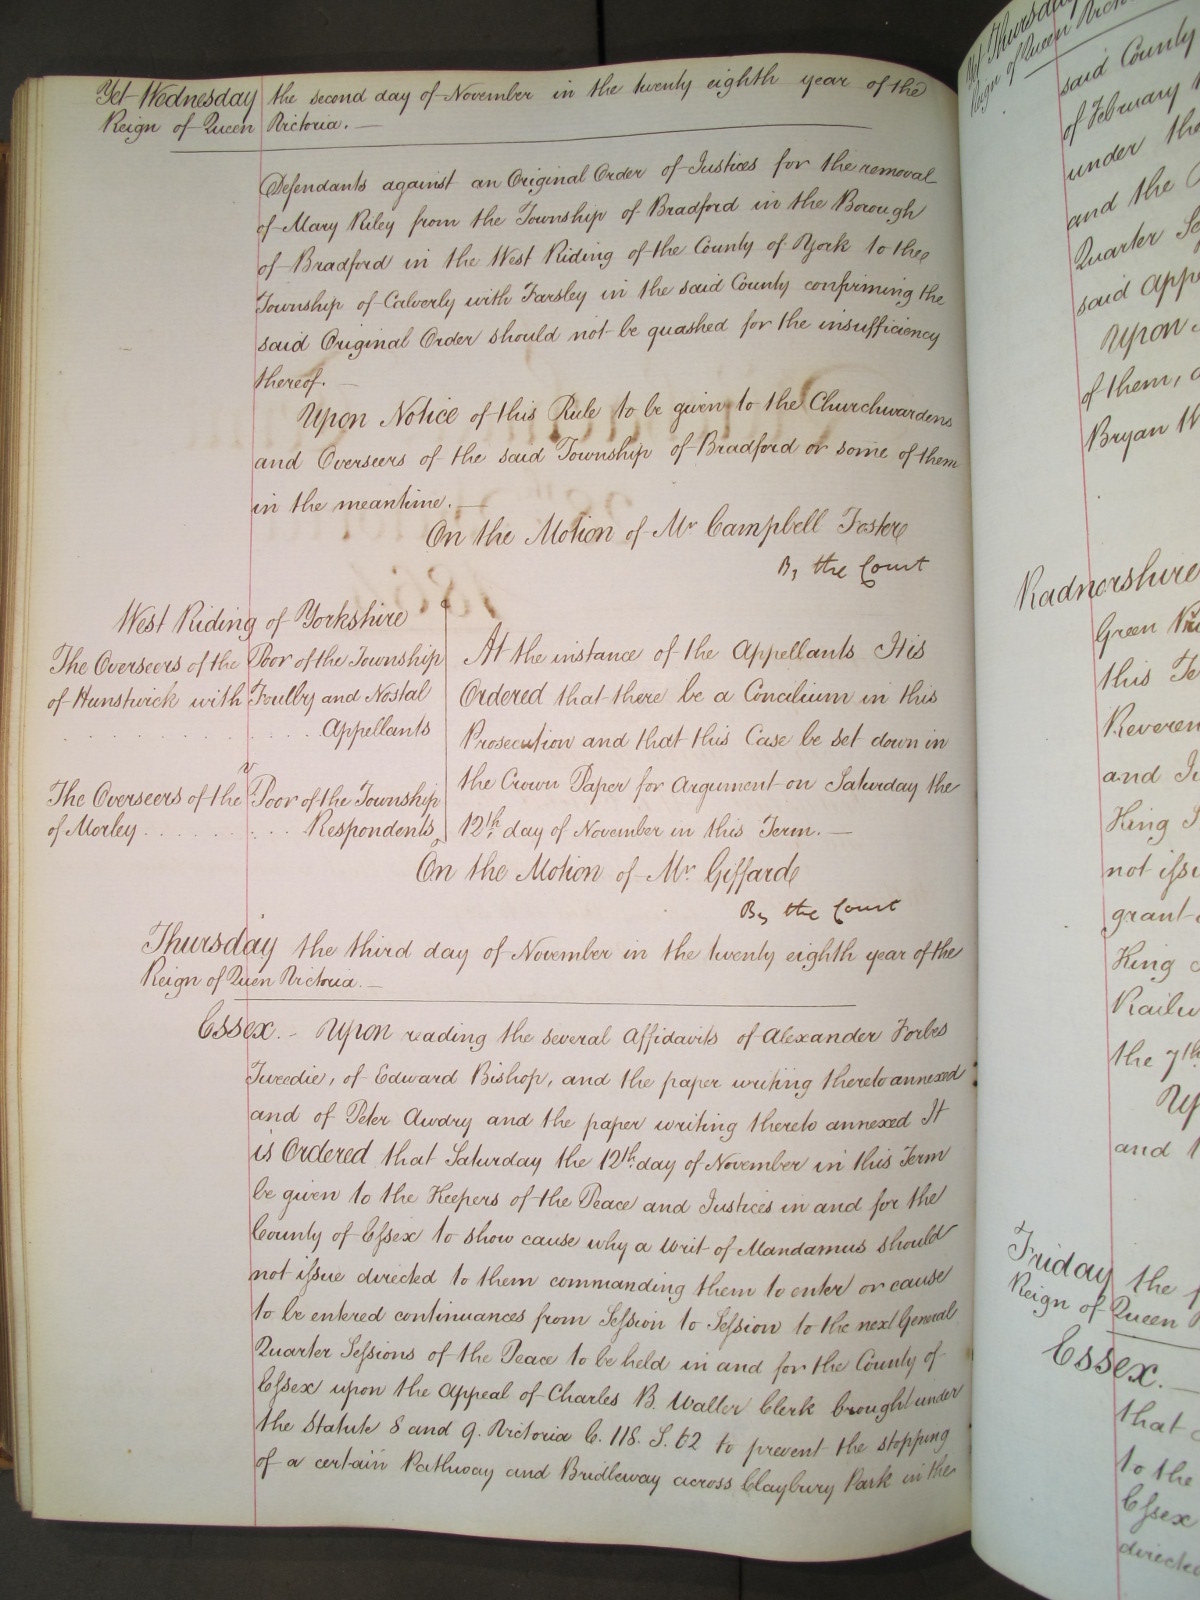 Yet Wednesday the second day of November in the twenty eighth year of the
Reign of Queen Victoria.
Defendants against an Original Order of Justices for the removal
of Mary Riley from the Township of Bradford in the Borough
of Bradford in the West Riding of the County of York to the
Township of Calverly with Farsley in the said County confirming the
said Original Order should not be quashed for the insufficiency
thereof.
Upon Notice of this Rule to be given to the Churchwardens
and Overseers of the said Township of Bradford or some of them
in the meantime.
On the Motion of Mr Campbell Foster
By the Court
West Riding of Yorkshire
The Overseers of the Poor of the Township
of Hunstwick with Foulby and Nostal
Appellants
v
The Overseers of the Poor of the Township
of Morley . . . . . . . . . Respondents
At the instance of the Appellants It is
Ordered that there be a Concilium in this
Prosecution and that this Case be set down in
the Crown Paper for Argument on Saturday the
12th day of November in this Term.
On the Motion of Mr Giffard
By the Court
Thursday the third day of November in the twenty eighth year of the
Reign of Queen Victoria.
Essex. - Upon reading the several Affidavits of Alexander Forbes
Tweedie, of Edward Bishop, and the paper writing thereto annexed
and of Peter Awdry and the paper writing thereto annexed It
is Ordered that Saturday the 12th day of November in this Term
be given to the Keepers of the Peace and Justices in and for the
County of Essex to show cause why a Writ of Mandamus should
not issue directed to them commanding them to enter or cause
to be entered continuances from Session to Session to the next General
Quarter Sessions of the Peace to be held in and for the County of
Essex upon the Appeal of Charles B. Waller Clerk brought under
the Statute 8 and 9. Victoria C. 118. S. 62 to prevent the stopping
of a certain Pathway and Bridleway across Claybury Park in the
Yet Thursday
Reign of Queen
said County
of February
under the
and the
Quarter
said
Upon
of them,
Bryan
Radnorshire
Green
this
and
King
not
grant
King
the 7th
and
Friday the
Reign of Queen
Essex. -
that
to the
Essex